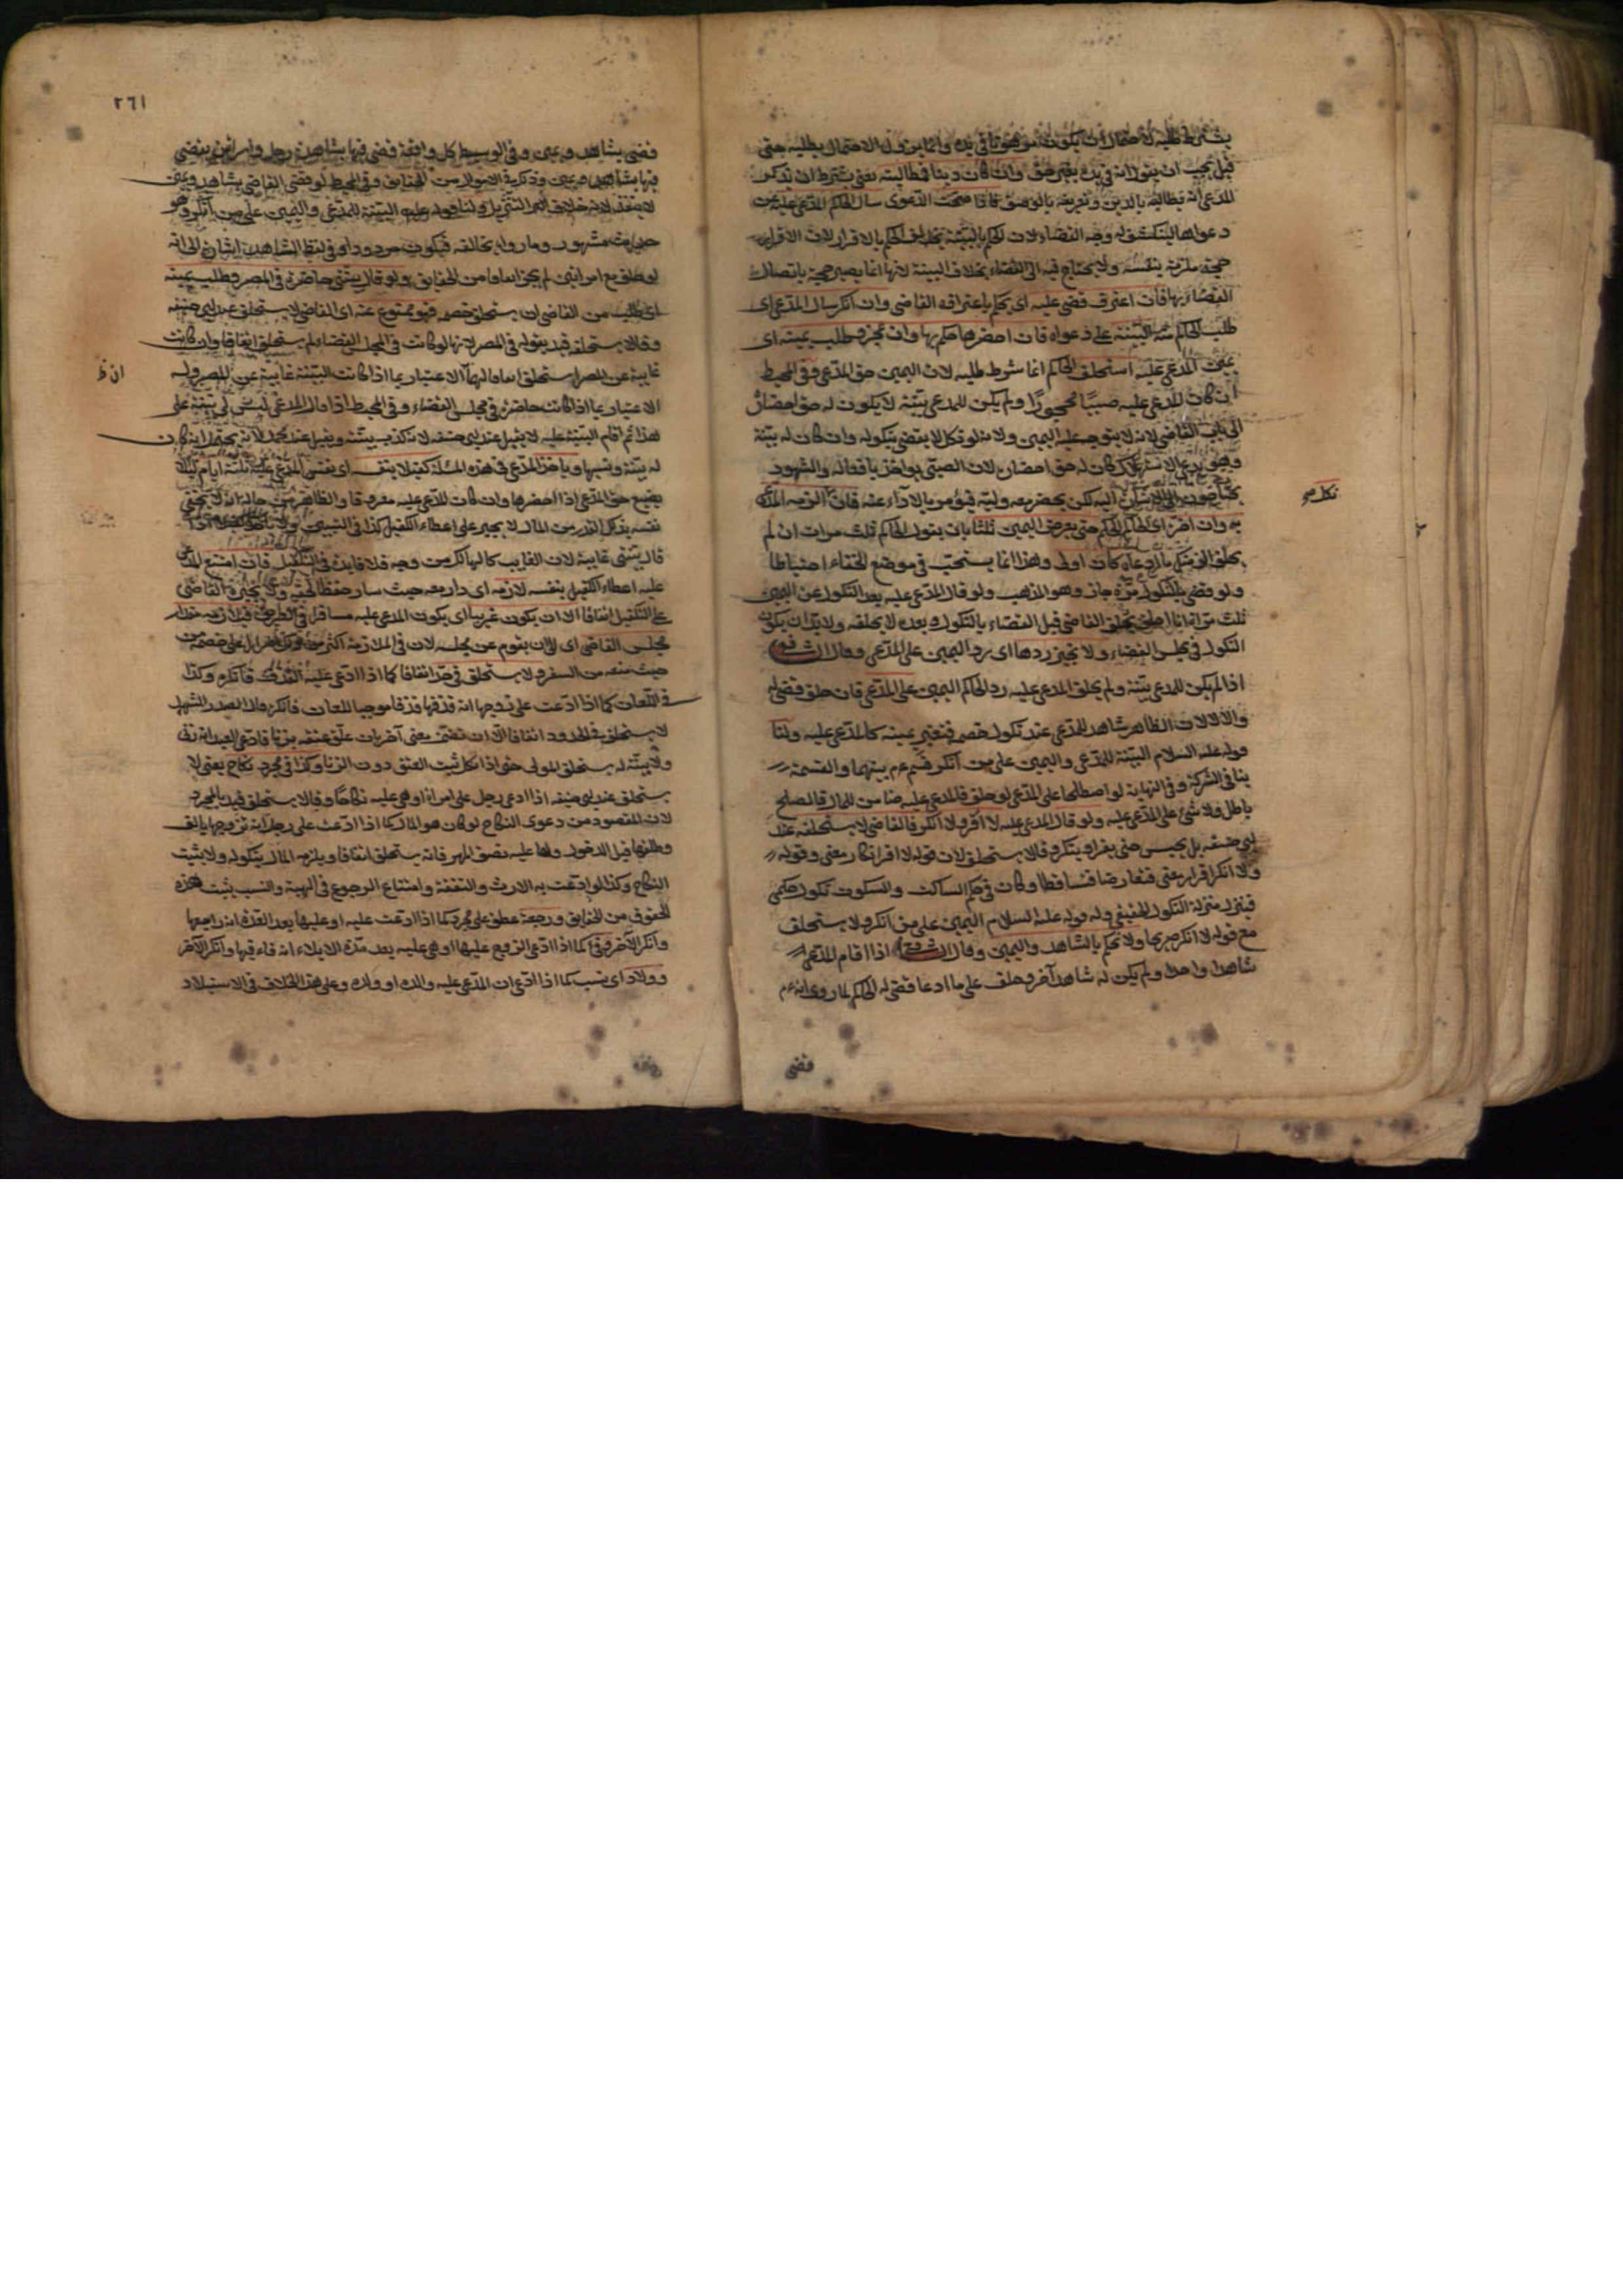 يشترط طلبه لاحتمال ان يكون مرهونا في يده وانما يزول الاحتمال بطلبه حتى
قيل يجب ان يقول انه في يده بغير حق وان كان دينا فطالبته يعني يشترط ان يذكر
المدعي انه يطالبه بالدين وتعريفه بالوصف فاذا صحت الدعوى سال الحاكم المدعى عليه عن
دعواها لينكشف له وجه القضاء لان الحكم بالبينة يخالف الحكم بالاقرار لان الاقرار
حجة ملزمة بنفسه ولا يحتاج فيه الى القضاء بخلاف البينة لانها انما يصير حجة باتصال
القضاء بها فان اعترف قضى عليه اى حكم باعترافه القاضى وان انكر سال المدعى اى
طلب الحاكم منه البينة على دعواه فان احضرها حكم بها وان عجز وطلب يمينه اى
يمين المدعى عليه استحلف الحاكم انما شرط طلبه لان اليمين حق المدعى وفى المحيط
ان كان المدعى عليه صبيا محجورا ولم يكن للمدعى بينة لا يكون له حق احضاره
الى باب القاضى لانه لا يتوجه عليه اليمين ولانه لو نكل لا يقضى بنكوله وان كان له بينة
وهو يدعى الاستهلاك كان له حق احضاره لان الصبى يواخذ بافعاله والشهود
يحتاجون الى الاشارة اليه لكن يحضر معه وليه فيؤمر بالاداء عنه
حتى يعرض اليمين ثلثا بان يقول الحاكم ثلث مرات ان لم
تحلف اقض عليك بما ادعاه كان اولى وهذا انما يستحب في موضع الخفاء احتياطا
ولو قضى بالنكول مرة جاز وهو المذهب ولو قال المدعى عليه بعد النكول عن اليمين
ثلث مرات انا احلف يحلف القاضى قبل القضاء بالنكول وبعده لا يحلفه ولا بد ان يكون
النكول في مجلس القضاء ولا نجيز ردها اى رد اليمين على المدعى وقال الشافعى
اذا لم يكن للمدعى بينة ولم يحلف المدعى عليه رد الحاكم اليمين على المدعى فان حلف قضى له
والا لا لان الظاهر شاهد للمدعى عند نكول خصمه فتعتبر يمينه كالمدعى عليه ولنا
قوله عليه السلام البينة للمدعى واليمين على من انكر قسم عم بينهما والقسمة
ينافى الشركة وفى النهاية لو اصطلحا على المدعى لو حلف فالمدعى عليه ضامن للمال فالصلح
باطل ولا شئ على المدعى عليه ولو قال المدعى عليه لا اقر ولا انكر فالقاضى لا يستحلفه عند
ابى حنيفه بل يحبس حتى يقر او ينكر وقالا يستحلف لان قوله لا اقر انكار معنى وقوله
ولا انكر اقرار معنى فتعارضا فتساقطا وكان في حكم الساكت والسكوت نكول حكمى
فينزل منزلة النكول الحقيقى وله قوله عليه السلام اليمين على من انكر ولا يستحلف
مع قوله لا انكر صريحا ولا نحكم بالشاهد واليمين وقال الشافعى اذا اقام المدعى
شاهدا واحدا ولم يكن له شاهد آخر وحلف على ما ادعا قضى له الحاكم لما روى انه عم
قضى
٢٦١
قضى بشاهد ويمين وفى الوسيط كل واقعة قضى فيها بشاهدة رجل وامراتين يقضى
فيها بشاهد ويمين وذكر الاموال من الحقايق وفى المحيط لو قضى القاضى بشاهد ويمين
لا ينفذ لانه خلاف امر التنزيل ولنا قوله عليه البينة للمدعى واليمين على من انكر وهو
حديث مشهور وما رواه يخالفه فيكون مردودا وفى لفظ الشاهد اشارة الى انه
لو حلف مع امراتين لم يجز اتفاقا من الحقايق ولو قال بينتى حاضرة في المصر وطلب يمينه
اى طلب من القاضى ان يستحلف خصمه فهو ممنوع عنه اى القاضى لا يستحلف عند ابى حنيفه
وقالا يستحلفه قيد بقوله في المصر لانها لو كانت في مجلس القضاء لم يستحلف اتفاقا وان كانت
غايبة عن المصر استحلف اتفاقا لهما الاعتبار بما اذا كانت البينة غايبة عن المصر وله
الاعتبار بما اذا كانت حاضرة في مجلس القضاء وفى المحيط اذا قال المدعى ليس لى بينة على
هذا ثم اقام البينة عليه لا يقبل عند ابى حنيفه لانه كذب بينته ويقبل عند محمد لانه يحتمل ان كان
له بينة ونسيها وياخذ المدعى في هذه المسئلة كفيلا بنفسه اى بنفس المدعى عليه ثلثة ايام كيلا
يضيع حق المدعى اذا احضرها وان كان المدعى عليه معروفا والظاهر من حاله انه لا يخفى
نفسه بذلك القدر من المال لا يجبر على اعطاء الكفيل كذا في التبيين
قال بينتى غايبة لان الغايب كالهالك من وجه فلا فايدة في التكفيل فان امتنع المدعى
عليه اعطاء الكفيل بنفسه لازمه اى دار معه حيث سار حفظا لحقه ولا يجبره القاضى
على التكفيل اتفاقا الا ان يكون غريبا اى يكون المدعى عليه مسافرا في الطريق فيلازمه مقدار
مجلس القاضى اى الى ان يقوم عن مجلسه لان في الملازمة اكثر من ذلك اضرارا على خصمه من
حيث منعه من السفر ولا يستحلف في حد اتفاقا كما اذا ادعى عليه القذف فانكره وكذا
في اللعان كما اذا ادعت على زوجها انه قذفها قذفا موجبا للعان فانكره قال الصدر الشهيد
لا يستحلف في الحدود اتفاقا الا ان تضمن يعنى آخر بان علق عتقه بزنا فادعى العبد انه زنى
ولا بينة له يستحلف المولى حتى اذا نكل ثبت العتق دون الزنا وكذا في مجرد نكاح يعنى لا
يستحلف عند ابى حنيفه اذا ادعى رجل على امراة او هى عليه نكاحا وقالا يستحلف قيد بالمجرد
لان المقصود من دعوى النكاح لو كان هو المال كما اذا ادعت على رجل انه تزوجها بالف
وطلقها قبل الدخول ولها عليه نصف المهر فانه يستحلف اتفاقا ويلزمه المال بنكوله ولا يثبت
النكاح وكذا لو ادعت به الارث والنفقة وامتناع الرجوع في الهبة والنسب يثبت هذه
الحقوق من الحقايق ورجعة عطف على مجرد كما اذا ادعت عليه او عليها بعد العدة انه راجعها
وانكر الآخر وفئ كما اذا ادعى الزوج عليها او هى عليه بعد مدة الايلاء انه فاء فيها وانكر الآخر
وولاد اى نسب كما اذا ادعى ان المدعى عليه والده او ولده وعلى هذا الخلاف في الاستيلاد
ان ظ